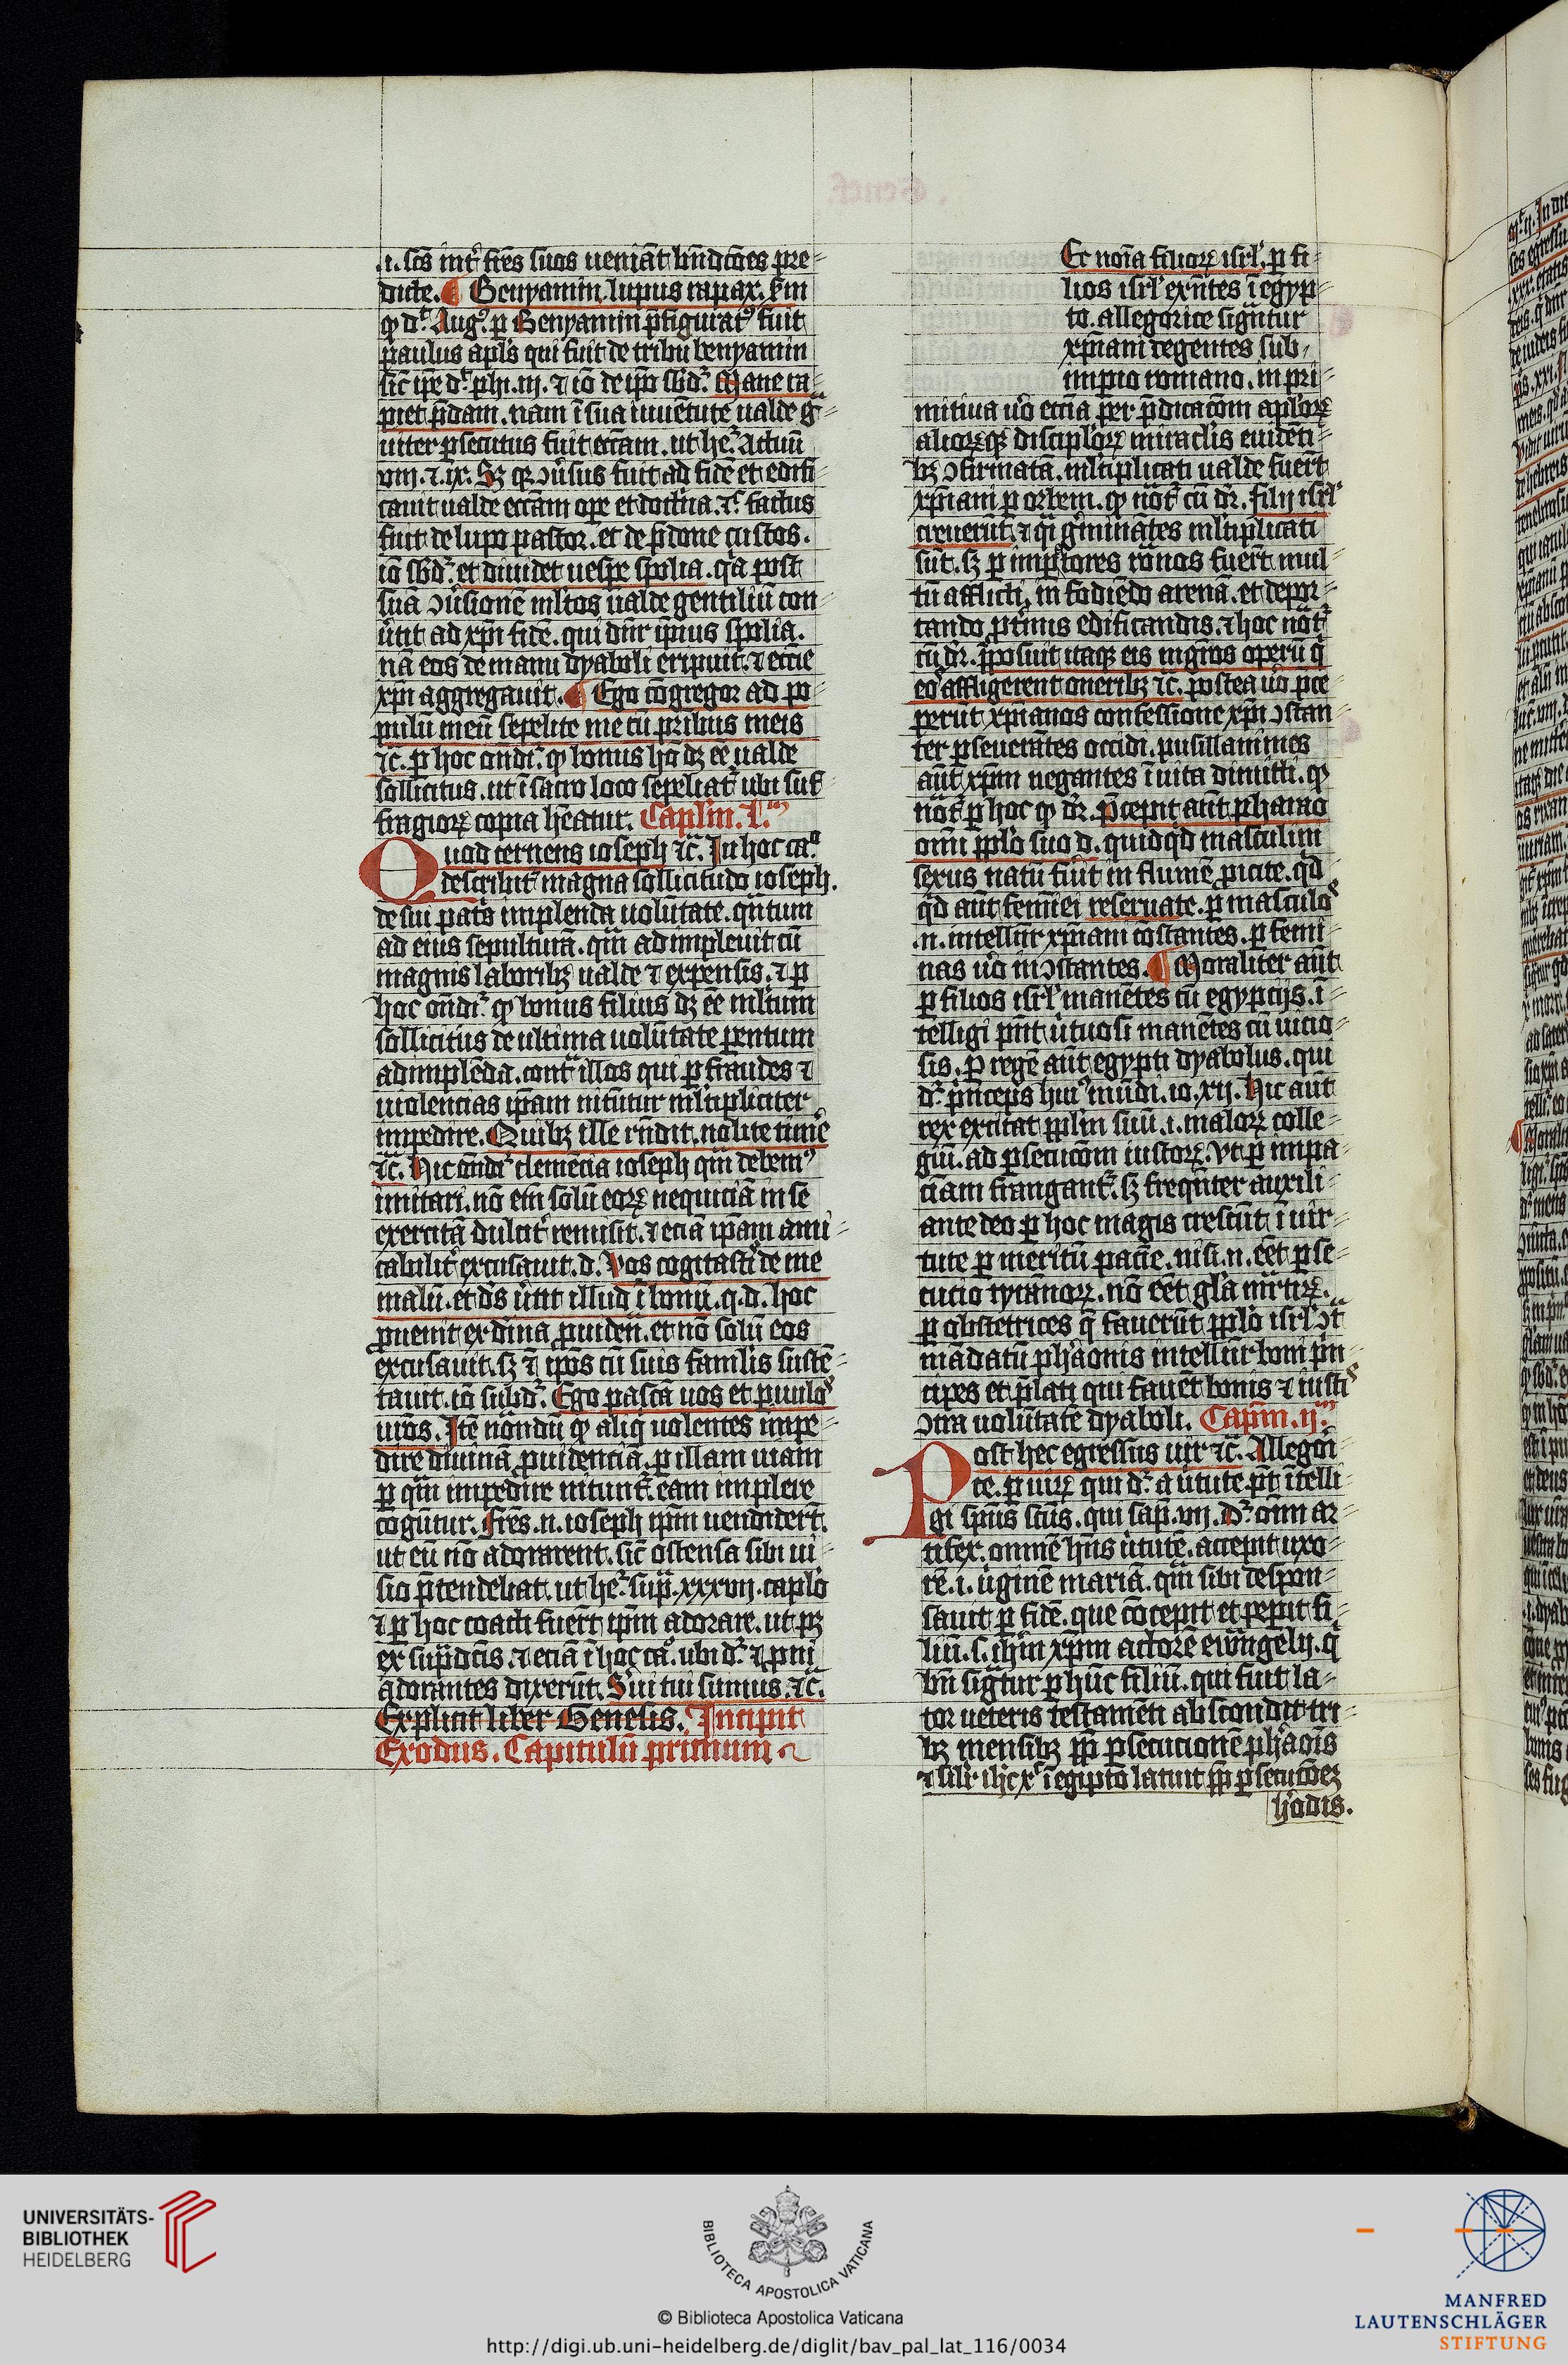 .i. scōs int̄ fr̄es suos ueniāt bn̄dictōes pre-
dicte. ¶ Benyamin lupus rapax. scd̄m
ꝙ dt̄. Augꝰ. ꝑ Benyamin p̄figuratꝰ fuit
paulus apl̄s qui fuit de tribu benyamin
sic̄ ip̄e dt̄ phi. iii. ⁊ iō de ip̄o sbd̄r. Mane ra-
piet p̄dam. nam ī sua iuuētute ualde gᵃ-
uiter ꝑsecutus fuit ecc̄am. ut hēr Actuū
viii. ⁊ ix. Sꝫ qꝫ ꝯūsus fuit ad fidē et edifi-
cauit ualde ecc̄am oꝑe et doct̄na. ⁊c̄. factus
fuit de lupo pastor. et de p̄done custos.
iō sbd̄r. et diuidet uesp̄e spolia. qͣ post
suā ꝯūsionē ml̄tos ualde gentiliū con-
ūtit ad xp̄i fidē. qui dn̄r ip̄ius spolia.
nā eos de manu dyaboli eripuit. ⁊ ecc̄ie
xp̄i aggregauit. ¶ Ego cōgregor ad po-
pulū meū sepelite me cū pr̄ibus meis
⁊c̄. ꝑ hoc on̄dir̄. ꝙ bonus hō dꝫ ēe ualde
sollicitus. ut ī sacro loco sepeliat̄ ubi suf-
fragioꝝ copia hēatur. Capl̄m. L.ᵐ
Quod cernens ioseph ⁊c̄. In hoc caº
describit̄ magna sollicitudo ioseph.
de sui pat̄s implenda uolūtate. qn̄tum
ad eius sepulturā. qm̄ adimpleuit cū
magnis laboribꝫ ualde ⁊ expensis. ⁊ ꝑ
hoc on̄dir̄ ꝙ bonus filius dꝫ ēe ml̄tum
sollicitus de ultima uolūtate parentum
adimplēda. cont̄ illos qui ꝑ fraudes ⁊
uiolencias ip̄am nitūtur ml̄tipliciter
impedire. Quibꝫ ille rn̄dit. nolite timē
⁊c̄. Hic on̄dir̄ clemēcia ioseph qm̄ debemꝰ
imitari. nō em̄ solū eoꝝ nequiciā in se
exercitā dulcit̄ remisit. ⁊ eciā ip̄am ami-
cabilit̄ excusauit. d. Vos cogitastis de me
malū. et ds̄ ūtit illud ī bonū. q. d. hoc
ꝓuenit ex diuīa ꝓuiden. et nō solū eos
excusauit. sꝫ ⁊ ip̄os cū suis familiis sustē-
tauit. iō subdr̄. Ego pascā uos et ꝑuulos
ur̄os. Itē nōandū ꝙ aliq̄ uolentes impe-
dire diuinā ꝓuidenciā. ꝑ illam uiam
ꝑ qm̄ impedire nitunt̄. eam implere
cogūtur. Fr̄es. n. ioseph ip̄m uendidert̄.
ut eū nō adorarent. sic̄ ostensa sibi ui-
sio p̄tendebat. ut hēr. sup̄. xxxvii. capl̄o
⁊ ꝑ hoc coacti fuer̄t ip̄m adorare. ut pꝫ
ex sup̄dict̄is. ⁊ eciā ī hoc caº. ubi dr̄. ⁊ pni
adorantes dixerūt. Sūi tui sumus. ⁊c̄.
Explicit liber Genesis. Incipit
Exodus. Capitulū primum
Ec noīa filioꝝ isrl̄. ꝑ fi-
lios isrl̄ exn̄tes ī egyp-
to. allegorice sign̄tur
xp̄iani degentes sub
imꝑio romano. in pri-
mitiua ūo ecc̄ia ꝑ p̄dicac̄om apl̄oꝝ
alioꝝqꝫ disciploꝝ miracl̄is euidēti-
bꝫ ꝯfirmatā. ml̄tiplicati ualde fuer̄t
xp̄iani ꝑ orbem. ꝙ not̄ cū dr̄. filij isrl̄
creuerūt. ⁊ qͣi gͤminātes ml̄tiplicati
sūt. sꝫ ꝑ imꝑatores rōnos fuer̄t mul-
tū afflicti. in fodiēdo arenā. et depor-
tando ꝓ t̄mis edificandis. ⁊ hoc not̄
cū dr̄. p̄posuit itaqꝫ eis mgr̄os operū q̄
eoˢ affligerent oneribꝫ ⁊c̄. postea ūo p̄ce-
perūt xp̄ianos confessione xp̄i ꝯstan-
ter ꝑseuerātes occidi. pusillanimes
aūt xp̄m negantes ī uita dimitti. ꝙ
not̄ ꝑ hoc ꝙ dr̄. p̄cepit aūt pharao
omī ppl̄o suo d. quidqd̄ masculini
sexus natū fūit in flumē ꝓicite. qd̄
qd̄ aūt femīei reseruate. ꝑ masculos
.n. intelln̄r xp̄iani cōstantes. ꝑ femi-
nas ūo inꝯstantes. ¶ Moraliter aūt
ꝑ filios isrl̄ manētes cū egypcijs. ī-
telligi pn̄t ūtuosi manētes cū uicio-
sis. ꝑ regē aūt egypti dyabolus. qui
dr̄ p̄nceps huiꝰ mūdi. io. xii. Hic aūt
rex excitat ppl̄m suū .i. maloꝝ colle-
giū. ad ꝑsecuc̄om iustoꝝ. vt ꝑ impa-
ciam frangant̄. sꝫ freqn̄ter auxili-
ante deo ꝑ hoc magis crescūt ī uir-
tute ꝑ meritū pac̄ie. nisi. n. ēet ꝑse-
cucio tyrānoꝝ. nō ēet gl̄a mr̄tirꝝ.
ꝑ obstetrices q̄ fauerūt ppl̄o isrl̄ ꝯt̄
mādatū phaonis intelln̄r boni pn̄-
cipes et p̄lati qui fauēt bonis ⁊ iustis
ꝯtra uolūtatē dyaboli. Cap̄m. ii.ᵐ
Post hec egressus uir ⁊c̄. Allegori-
ce. ꝑ uirꝝ qui dr̄ a ūtute pt̄ ītelli-
gi sp̄us sc̄us. qui sap̄. vii. dr̄ om̄ ar-
tifex. omnē hn̄s ūtutē. accepit uxo-
rē .i. ūginē mariā. qm̄ sibi despon-
sauit ꝑ fidē. que cōcepit et peperit fi-
liū. s. ih̄m xp̄m actorē euāngelij. q̄
bn̄ sign̄tur ꝑ hūc filiū. qui fuit la-
tor ueteris testamēti abscondit tri-
bꝫ mensibꝫ pp̄ ꝑsecucionē phaois
⁊ sil̄r ih̄c x̄ ī egipto latuit pp̄ ꝑsecucōeꝫ
h̓odis.
UNIVERSITÄTS-
BIBLIOTHEK
HEIDELBERG
BIBLIOTECA APOSTOLICA VATICANA
© Biblioteca Apostolica Vaticana
http://digi.ub.uni-heidelberg.de/diglit/bav_pal_lat_116/0034
MANFRED
LAUTENSCHLÄGER
STIFTUNG